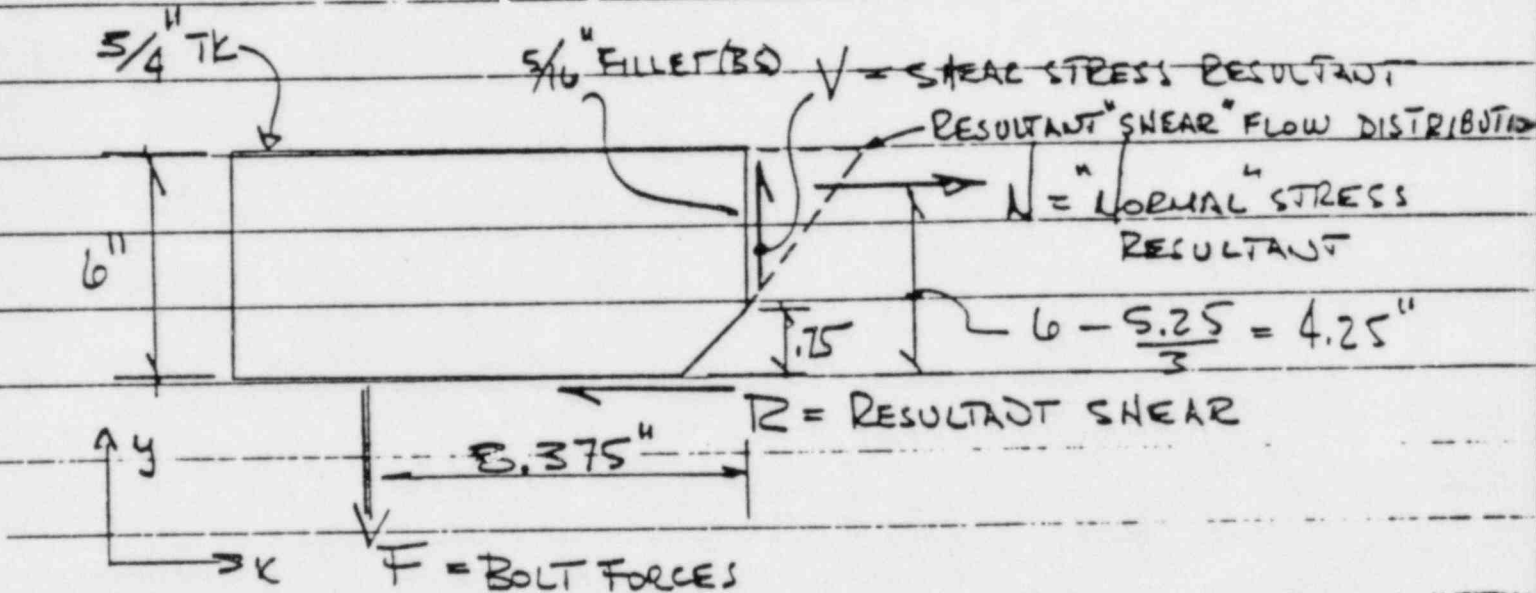 5/4" TK
5/16" FILLET (BS)
V = SHEAR STRESS RESULTANT
RESULTANT "SHEAR" FLOW DISTRIBUTIO
N = "NORMAL" STRESS
RESULTANT
6"
.75
6 - 5.25/3 = 4.25"
R = RESULTANT SHEAR
8.375"
y
x
F = BOLT FORCES